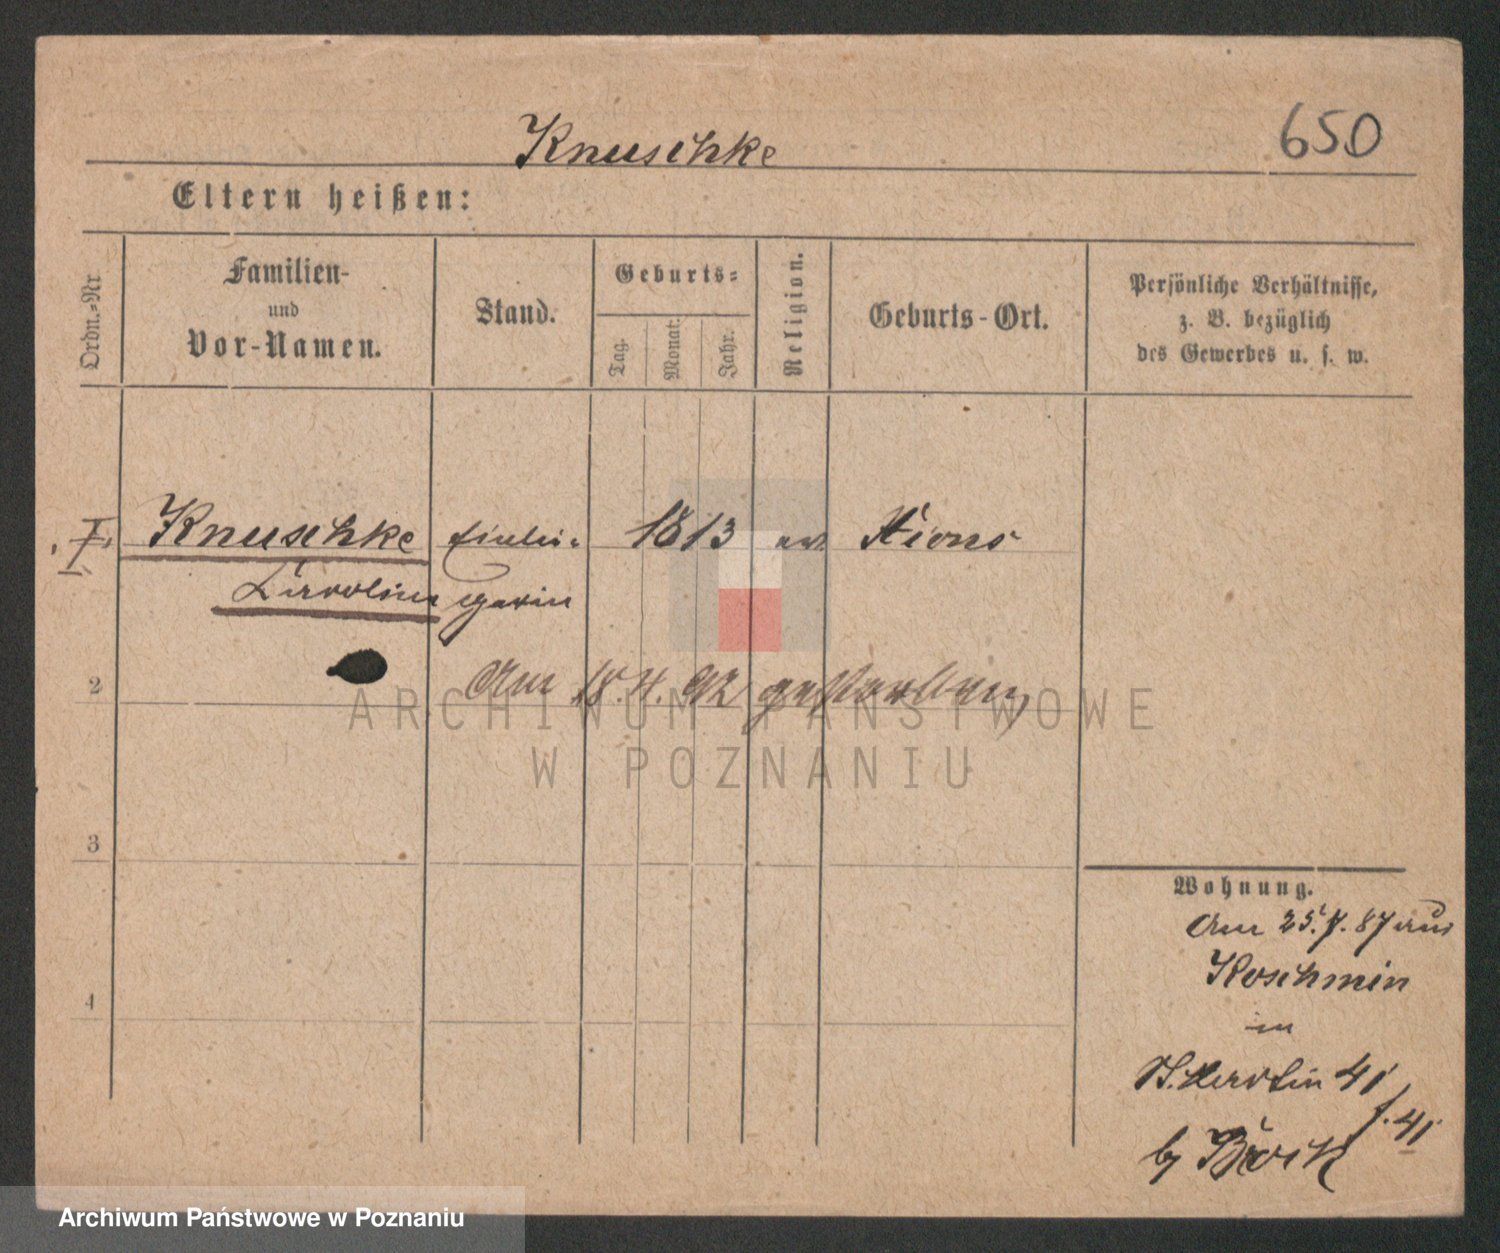 Knuschke
650
Eltern heißen:
Ordn.-Nr.
Familien-
und
Vor-Namen.
Stand.
Geburts-
Tag.
Monat.
Jahr.
Religion.
Geburts-Ort.
Persönliche Verhältnisse,
z. B. bezüglich
des Gewerbes u. s. w.
I. Knuschke 1813 Xions
Caroline
2
Am 18. 4. 92 gestorben
ARCHIWUM PAŃSTWOWE
W POZNANIU
3
Wohnung.
Am 25. 7. 87 aus
Koschmin
4
in
St. Martin 41
f. 41
Archiwum Państwowe w Poznaniu